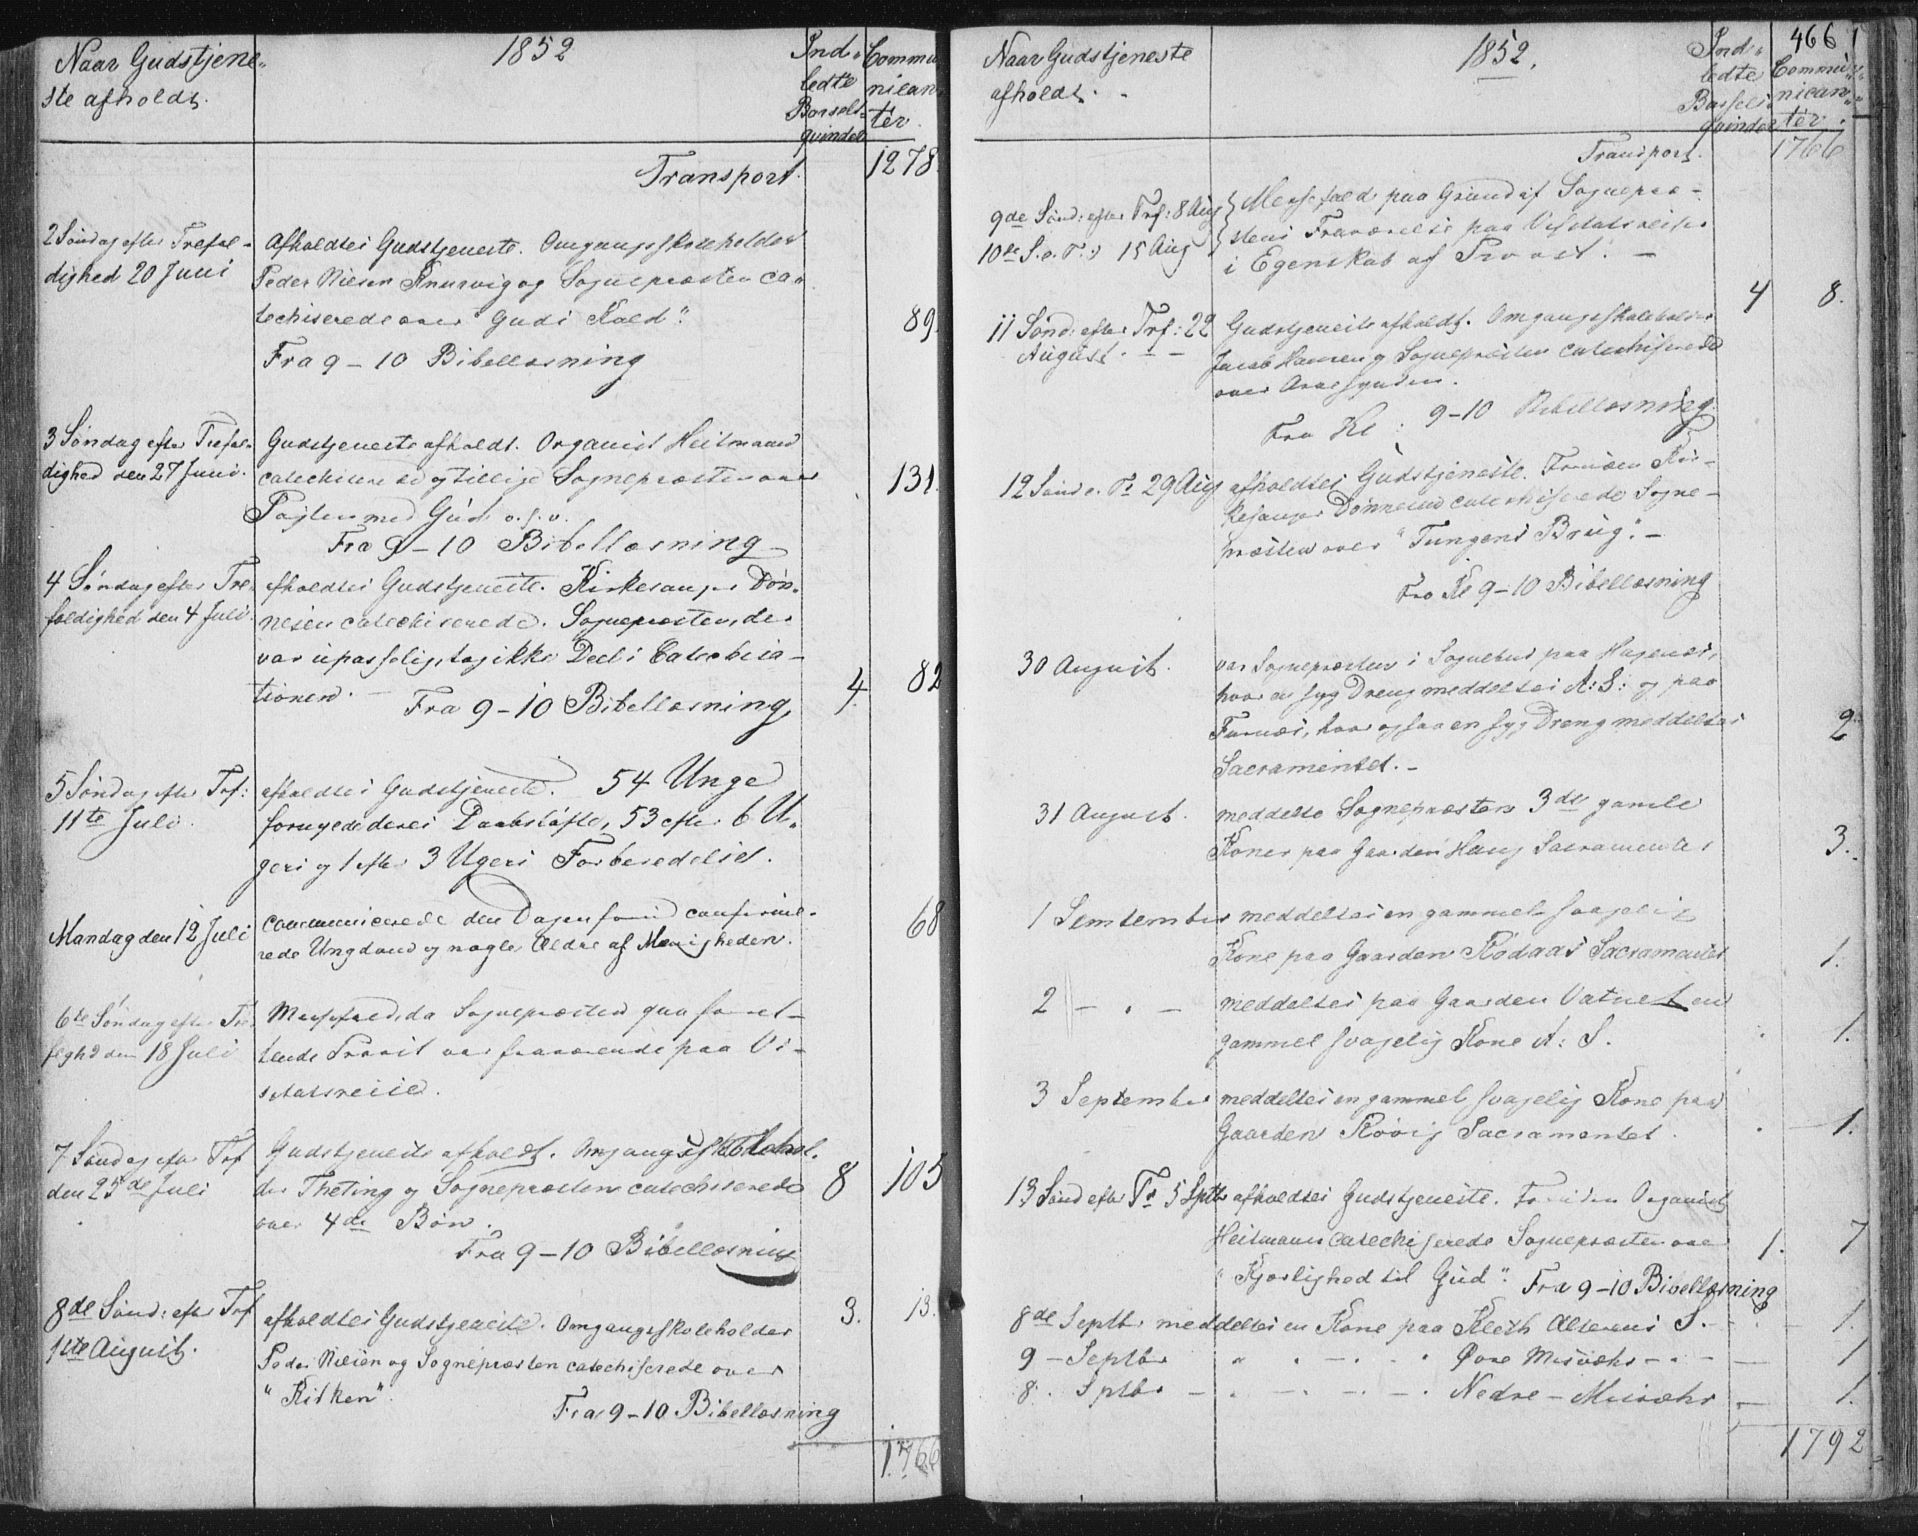 Naar Gudstjene-
ste afholdt.
1852
Ind-
ledte
Barsels-
qvinder
Commu
nican-
ter.
Transport. 1278.
2 Søndag efter Trefol-
dighed 20 Juni
Afholdtes Gudstjeneste. Omgangsskoleholder
Peder Nielsen Knurvig og Sognepræsten ca-
techiserede over "Guds Kald".
89.
Fra 9-10 Bibellæsning
3 Søndag efter Trefol-
dighed den 27 Juni.
Gudstjeneste afholdt. Organist Heitmann
catechiserede og tillige Sognepræsten over
131.
Pagten med Gud o.s.v.
Fra 9-10 Bibellæsning
4 Søndag efter Tre-
foldighed den 4 Juli
afholdtes Gudstjeneste. Kirkesanger Døn-
nesen catechiserede. Sognepræsten, der
var upasselig, tog ikke Deel i Catechisa-
tionen.
Fra 9-10 Bibellæsning
4. 82
5 Søndag efter Tref:
11te Juli.
afholdtes Gudstjeneste. 54 Unge
fornyede deres Daabsløfte, 53 efter 6 U-
gers og 1 efter 3 Ugers Forberedelse.
Mandag den 12 Juli
communicerede den Dagen forud confirme-
rede Ungdom og nogle Ældre af Menigheden.
68
6te Søndag efter Tre
fegh? den 18 Juli
Messefald, da Sognepræsten qua forret-
tende Provst var fraværende paa Vi-
sitatsreise.
7 Søndag efter Tref
den 25de Juli
Gudstjeneste afholdt. Omgangsskolehol-
der Theting og Sognepræsten catechiserede
over 4de Bøn.
8 105
Fra 9-10 Bibellæsning
8de Sønd: efter Tref
1ste August.
afholdtes Gudstjeneste. Omgangsskoleholder
Peder Nielsen og Sognepræsten catechiserede over
"Kirken".
3. 13.
Fra 9-10 Bibellæsning
1766
Naar Gudstjeneste
afholdt.
1852.
Ind-
ledte
Barsels-
qvinder
466
Commu-
nican-
ter.
Transport. 1766
9de Sønd: efter Trf: 8 Aug
10de S. e. T. 15 Aug
Messefald paa Grund af Sognepræ-
stens Fraværelse paa Visitatsreiser
i Egenskab af Provst.
11 Sønd: efter Trf: 22
August.
Gudstjeneste afholdt. Omgangsskoleholder
Jacob Hansen og Sognepræsten catechiserede
over Arvesynden.
4 8.
Fra Kl: 9-10 Bibellæsning
12 Sønd e. Tr 29 Aug
afholdtes Gudstjeneste. Foruden Kir-
kesanger Dønnesen catechiserede Sogne-
præsten over "Tungens Brug".
Fra Kl 9-10 Bibellæsning
30 August.
var Sognepræsten i Sognebud paa Hagenæs,
hvor en syg Dreng meddeltes A: S: og paa
Furnæs, hvor ogsaa en syg Dreng meddeltes
Sacramentet.
2
31 August.
meddelte Sognepræsten 3de gamle
Koner paa Gaarden Haug Sacramentet
3.
1 Semtember
meddeltes en gammel svagelig
Kone paa Gaarden Rødaas Sacramentet
1.
2 - " -
meddeltes paa Gaarden Vatnet en
gammel svagelig Kone A: S.
1.
3 September
meddeltes en gammel svagelig Kone paa
Gaarden Røvig Sacramentet.
1.
13 Sønd efter Tr 5 Septbr
afholdtes Gudstjeneste. Foruden Organist
Heitmann catechiserede Sognepræsten over
"Kjærlighed til Gud". Fra 9-10 Bibellæsning
1. 7
8de Septbr meddeltes en Kone paa Kleth Alterens S. 1.
9 - Septbr " " Øvre Misvæhr 1
8. Sptbr " " Nedre - Misvæhr 1.
1792